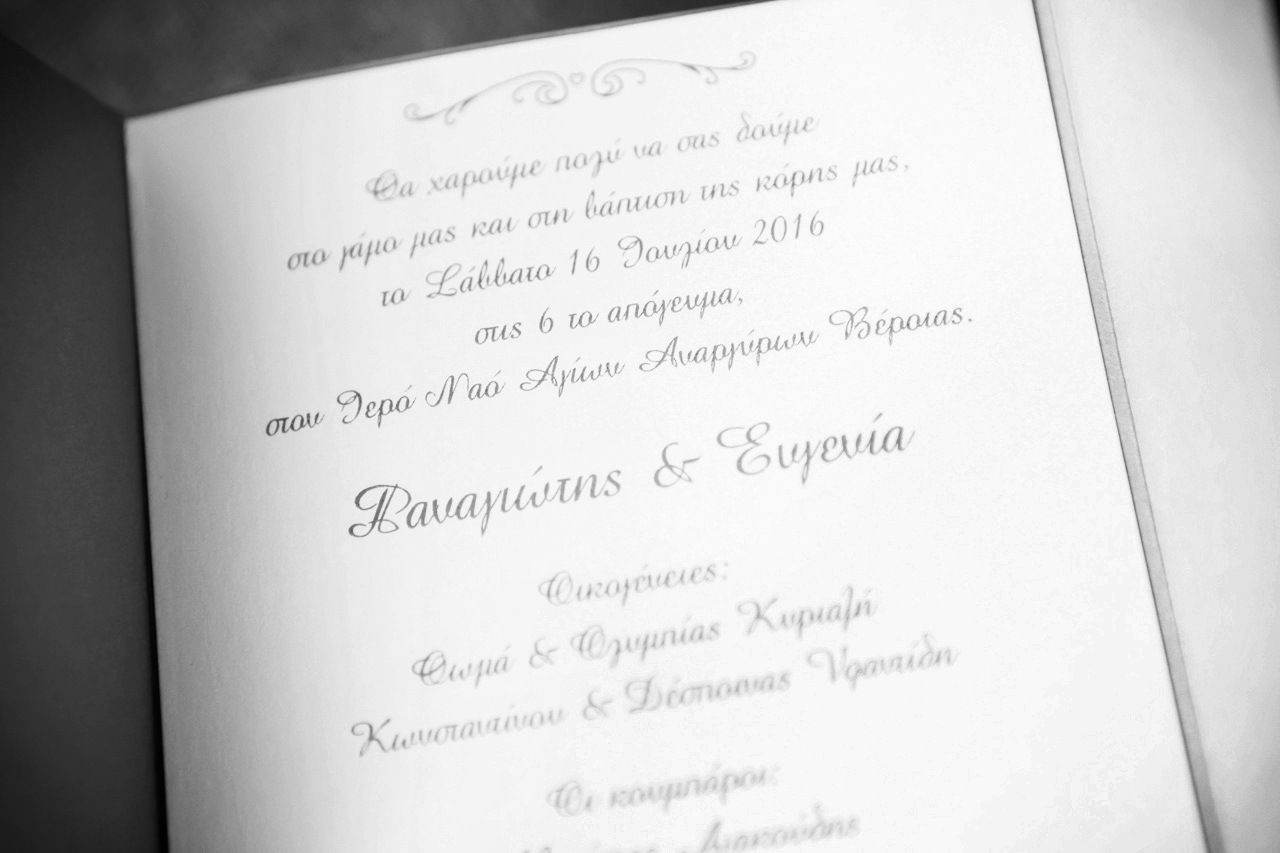 Θα χαρούμε πολύ να σας δούμε
στο γάμο μας και στη βάπτιση της κόρης μας,
το Σάββατο 16 Ιουλίου 2016
στις 6 το απόγευμα,
στον Ιερό Ναό Αγίων Αναργύρων Βέροιας.
Παναγιώτης & Ευγενία
Οικογένειες:
Θωμά & Ολυμπίας Κυριαλή
Κωνσταντίνου & Δέσποινας Υφαντίδη
Οι κουμπάροι: